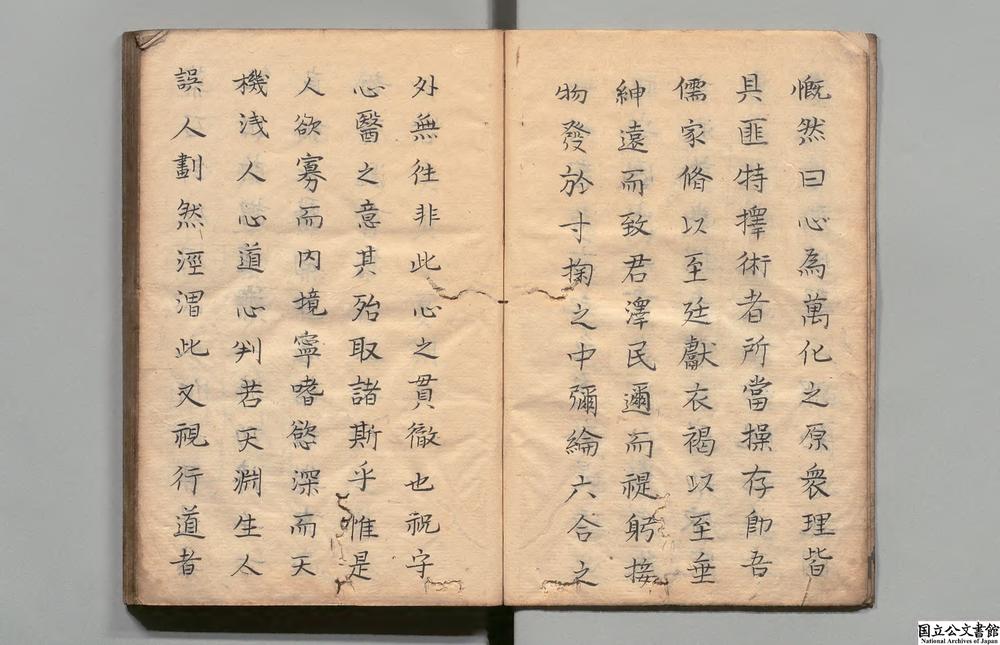 慨然曰心為萬化之原衆理皆
具匪特擇術者所當操存即吾
儒家脩以至廷獻衣褐以至垂
紳遠而致君澤民邇而禔躬接
物發於寸掬之中彌綸六合之
外無徃非此心之貫徹也祝字
心醫之意其殆取諸斯乎惟是
人欲寡而内境寧嗜慾深而天
機淺人心道心判若天淵生人
誤人劃然涇渭此又視行道者
国立公文書館
National Archives of Japan